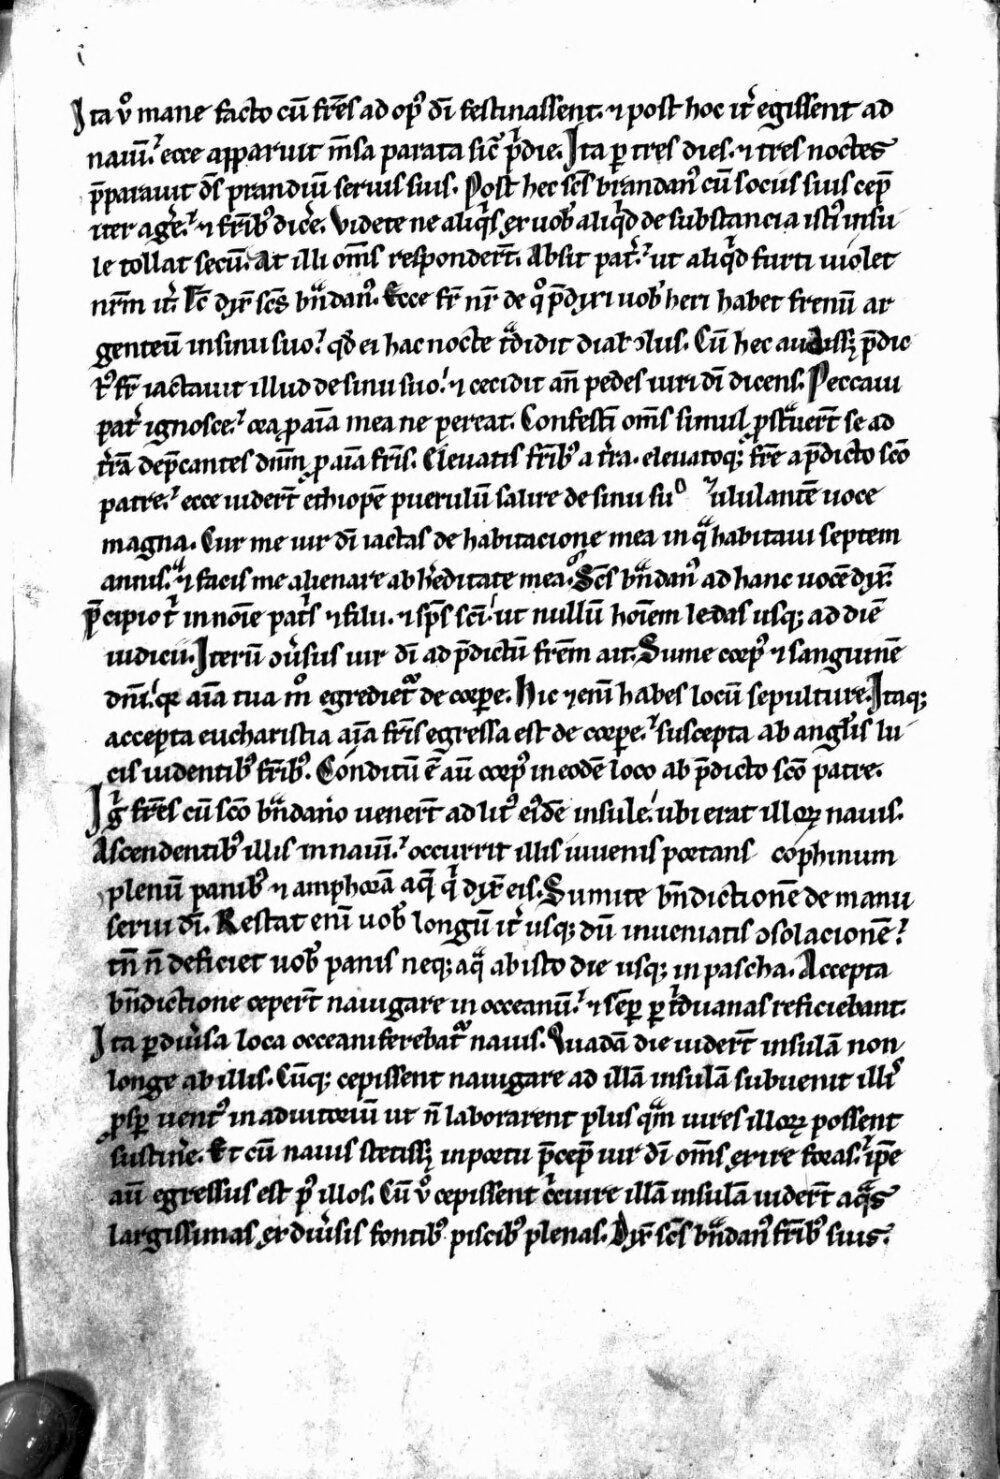 Ita v̊ mane facto cū fr̄es ad op᷒ dī festinassent. ⁊ post hoc it̉ egissent ad
nauī. ecce apparuit m̄sa parata sic̄ p̉die. Ita ꝑ tres dies. ⁊ tres noctes
p̄parauit d̄s prandiū seruis suis. Post hec sc̄s brandan᷒ cū sociis suis cep̄
iter ag̉e. ⁊ fr̄ib᷒ dic̉e. Videte ne aliq̉s ex uob᷒ aliq̉d de substancia isti᷒ insu
le tollat secū. At illi om̄s respondert̄. Absit pat̉. ut aliq̉d furti uiolet
nr̄m it̉. Tc̄ dix̄ sc̄s bn̄dan᷒. Ecce fr̄ nr̄ de q̊ p̄dixi uob᷒ heri habet frenū ar
genteū in sinu suo. qd̄ ei hac nocte t̉didit diabolus. Cū hec audissꝫ p̄dic
t᷒ fr̄ iactauit illud de sinu suo. ⁊ cecidit an̄ pedes uiri dī dicens. Peccaui
pat̉ ignosce. ora ꝓ aīa mea ne pereat. Confestī om̄s simul ꝓst̉uert̄ se ad
t̉rā dep̄cantes dn̄m ꝓ aīa fr̄is. Eleuatis fr̄ib᷒ a t̉ra. eleuatoqꝫ fr̄e a p̄dicto sc̄o
patre. ecce uidert̄ ethiopē puerulū salire de sinu su° ululantē uoce
magna. Cur me uir dī iactas de habitacione mea in qᵃ habitaui septem
annis. ⁊ facis me alienare ab h̉editate mea. Sc̄s bn̄dan᷒ ad hanc uocē dix̄.
P̄cipio t̉ in noīe pat̉s ⁊ filii. ⁊ sp̄s sc̄i. ut nullū hoīem ledas usqꝫ ad diē
iudicii. Iterū ꝯủsus uir dī ad p̄dictū fr̄em ait. Sume corp᷒ ⁊ sanguinē
dn̄i. qr aīa tua m̊ egrediet᷑ de corpe. Hic ⁊enī habes locū sepulture. Itaqꝫ
accepta eucharistia aīa fr̄is egressa est de corpe. suscepta ab angl̄is lu
cis uidentib᷒ fr̄ib᷒. Conditū ē aū corp᷒ in eodē loco ab p̄dicto sc̄o patre.
Ig̉ fr̄es cū sc̄o bn̄dano venert̄ ad lit᷒ ei᷒dē insule. ubi erat illoꝝ nauis.
Ascendentib᷒ illis in nauī. occurrit illis iuuenis portans cophinum
plenū panib᷒ ⁊ amphorā aq̄ q̉ dix̄ eis. Sumite bn̄dictionē de manu
serui dī. Restat enī uob᷒ longū it̉ usqꝫ dū inueniatis ꝯsolacionē.
tn̄ n̄ deficiet uob᷒ panis neqꝫ aq̄ ab isto die usqꝫ in pascha. Accepta
bn̄dictione cepert̄ nauigare in occeanū. ⁊ semꝑ ꝑ t̉duanas reficiebant.
Ita ꝑ diủsa loca occeani ferebat᷑ nauis. Quadā die uidert̄ insulā non
longe ab illis. Cūqꝫ cepissent nauigare ad illā insulā subuenit illi᷒
ꝓspꝑ uent᷒ in adiutoriū ut n̄ laborarent plus qᵃm uires illoꝝ possent
sustin̉e. Et cū nauis stetissꝫ in portu p̄cep̄ uir dī om̄s exire foras. ip̄e
aū egressus est p᷒ illos. Cū v̊ cepissent c̉cuire illā insulā uidert̄ aqᵃs
largissimas ex diủsis fontib᷒ piscib᷒ plenas. Dix̄ sc̄s bn̄dan᷒ fr̄ib᷒ suis.